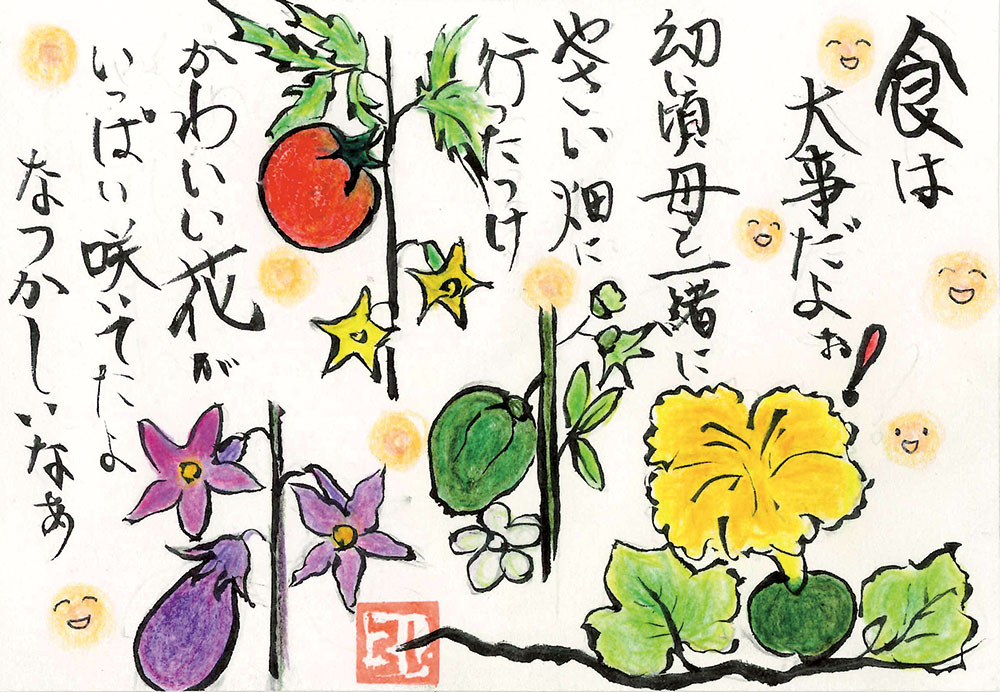 食は
大事だよぉ!
幼い頃母と一緒に
やさい畑に
行ったっけ
かわいい花が
いっぱい咲いてたよ
なつかしいなぁ